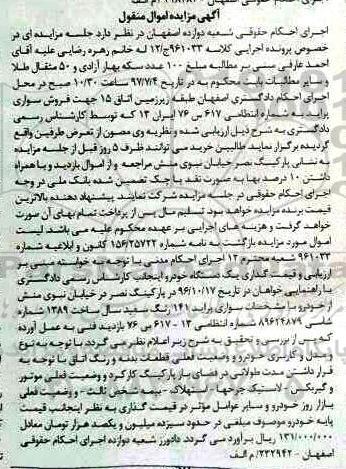 آگهی مزایده اموال منقول
اجرای احکام حقوقی شعبه دوازده اصفهان در نظر دارد جلسه مزایده ای در
خصوص پرونده اجرایی کلاسه ۹۶۱۰۳۳ج/۱۲ له خانم زهره رضایی علیه آقای
احمد عارفی مبنی بر مطالبه مبلغ ۱۰۰ عدد سکه بهار آزادی و ۵۰ مثقال طلا
و سایر مطالبات بابت محکوم به در تاریخ ۹۷/۷/۴ ساعت ۱۰/۳۰ صبح در محل
اجرای احکام دادگستری اصفهان طبقه زیرزمین اتاق ۱۵ جهت فروش سواری
پراید به شماره انتظامی ۶۱۷ س ۷۶ ایران ۱۳ که توسط کارشناس رسمی
دادگستری به شرح ذیل ارزیابی شده و نظریه وی مصون از تعرض طرفین واقع
گردیده برگزار نماید. طالبین خرید می توانند ظرف ۵ روز قبل از جلسه مزایده
به نشانی پارکینگ نصر خیابان نبوی منش مراجعه و از اموال بازدید و با همراه
داشتن ۱۰ درصد بها به صورت نقد یا چک تضمین شده بانک ملی در وجه
اجرای احکام حقوقی در جلسه مزایده شرکت نمایند. پیشنهاد دهنده بالاترین
قیمت برنده مزایده خواهد بود. تسلیم مال پس از پرداخت تمام بهای آن صورت
خواهد گرفت و هزینه های اجرایی بر عهده محکوم علیه می باشد. لیست
اموال مورد مزایده بازگشت به نامه شماره ۱۵۶/۲۵۷۲۲ کانون و ابلاغیه شماره
۹۶۱۰۳۳ شعبه محترم ۱۲ اجرای احکام مدنی با توجه به خواسته مبنی بر
ارزیابی و قیمت گذاری یک دستگاه خودرو اینجانب کارشناس رسمی دادگستری
با راهنمایی خواهان در تاریخ ۹۶/۱۰/۱۷ در پارکینگ نصر در خیابان نبوی منش
از خودرو با مشخصات سواری پراید ۱۴۱ رنگ سفید سال ساخت ۱۳۸۹ شماره
شاسی ۸۹۶۲۴۸۷۹ شماره انتظامی ۱۳ - ۶۱۷ س ۷۶ بازدید فنی به عمل آورده
که پس از بررسی و تحقیق به شرح زیر اعلام نظر می گردد با توجه به نوع
و مدل و کاربری خودرو و وضعیت فعلی قطعات بدنه و رنگ اتاق با توجه به
قرار داشتن مدت طولانی در فضای باز پارکینگ کارکرد و وضعیت فعلی موتور
و گیربکس - لاستیک چرخها - استهلاک - بیمه شخص ثالث - و وضعیت فعلی
بازار روز خودرو و سایر عوامل مؤثر در قیمت گذاری به نظر اینجانب قیمت
پایه خودرو موصوف مبلغی در حدود سیزده میلیون و یکصد هزار تومان معادل
۱۳۱/۰۰۰/۰۰۰ ریال برآورد می گردد. دادورز شعبه دوازده اجرای احکام حقوقی
اصفهان - ۲۳۲۹۴۲/ م الف